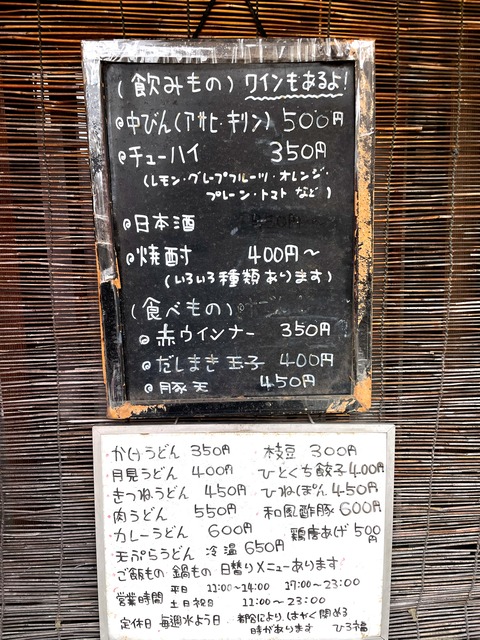 (飲みもの) ワインもあるよ!
@中びん(アサヒ・キリン) 500円
@チューハイ 350円
(レモン・グレープフルーツ・オレンジ・
プレーン・トマト など)
@日本酒
@焼酎 400円~
(いろいろ種類あります)
(食べもの)
@赤ウインナー 350円
@だしまき玉子 400円
@豚天 450円
かけうどん 350円
月見うどん 400円
きつねうどん 450円
肉うどん 550円
カレーうどん 600円
天ぷらうどん 冷温 650円
枝豆 300円
ひとくち餃子 400円
ひねぽん 450円
和風酢豚 600円
鶏唐あげ 500円
ご飯もの 鍋もの 日替りメニューあります
営業時間 平日 11:00~14:00 17:00~23:00
土日祝日 11:00~23:00
定休日 毎週水よう日 都合により、はやく閉める
時があります ひろ福